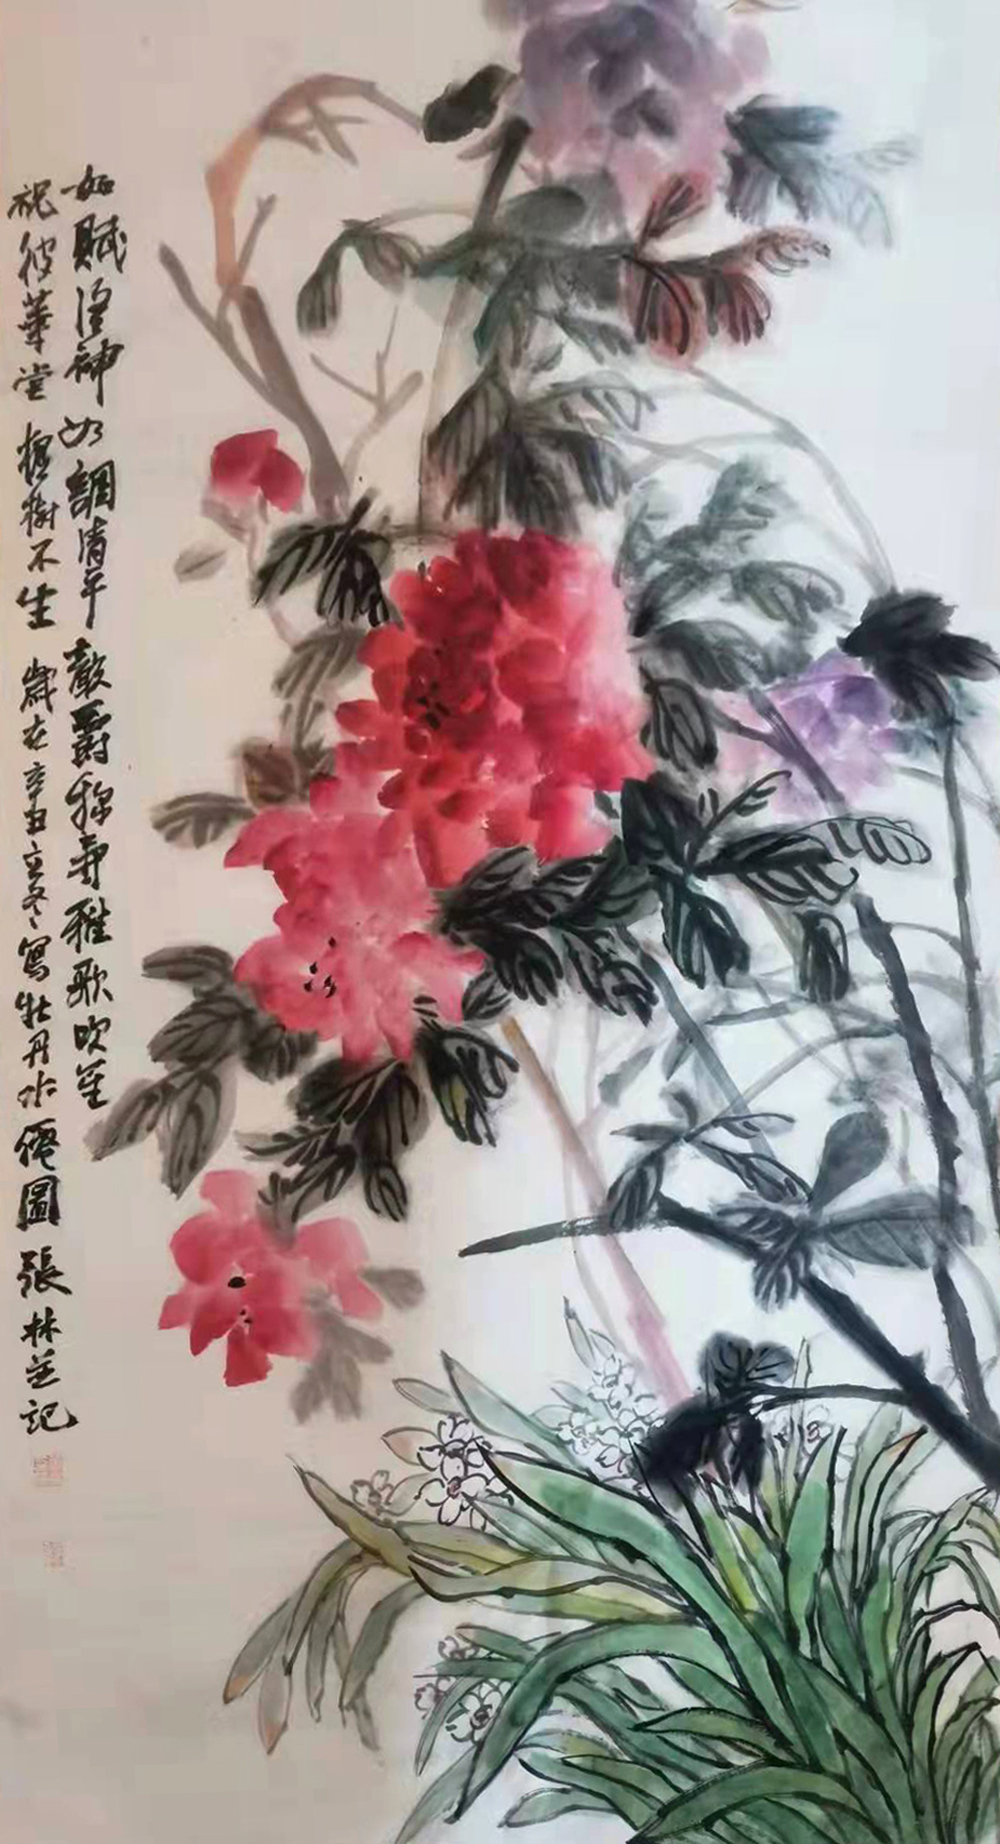 如賦洛神如調清平爵稱壽雅歌吹笙
祝彼華堂樹不生歲在辛丑立冬寫牡丹水僊圖張林並記